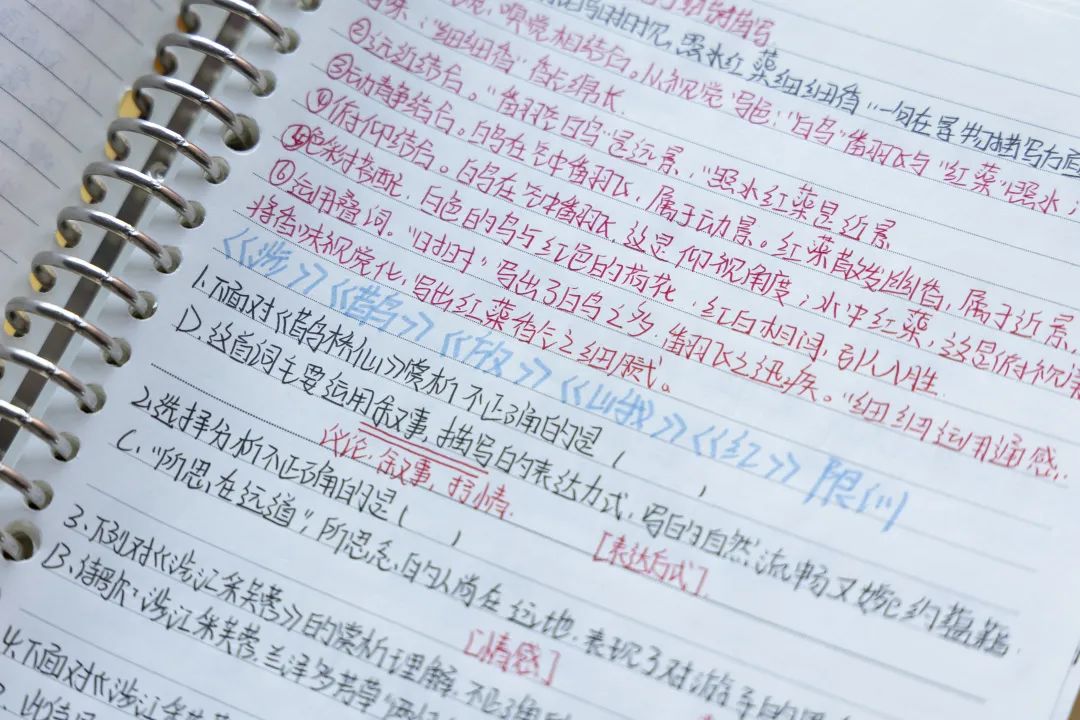 照水红蕖细细香"一句在景物描写方面
嗅觉相结合。从视觉写色:"白鸟"翻飞与"红蕖"照水
"细细香"香长绵长
②远近结合。"翻空白鸟"是远景,"照水红蕖是近景
③动静结合。白鸟在空中翻飞,属于动景。红蕖散发幽香,属于近景,
④俯仰结合。白鸟在空中翻飞,这是仰视角度;水中红蕖,这是俯视
⑤色彩搭配,白色的鸟与红色的荷花,红白相间,引人入胜
⑥运用叠词。"时时",写出了白鸟之多,翻飞之迅疾。"细细运用通感,
将香味视觉化,写出红蕖香气之细腻。
《涉》《鹊》《放》《山》《红》限
1.下面对《鹊桥仙》赏析不正确的是( )
D.这首词主要运用叙事,描写的表达方式,写的自然流畅又婉约蕴藉.
议论,叙事,抒情. [表达方式].
2.选择分析不正确的是( )
C."所思在远道",所思念的人尚在远地.表现了对游子的
[情感]
3.下列对《涉江采芙蓉》的赏析理解.不正确
B.诗歌.涉江采芙蓉,兰泽多芳草"两
4.下面对《涉江采芙蓉